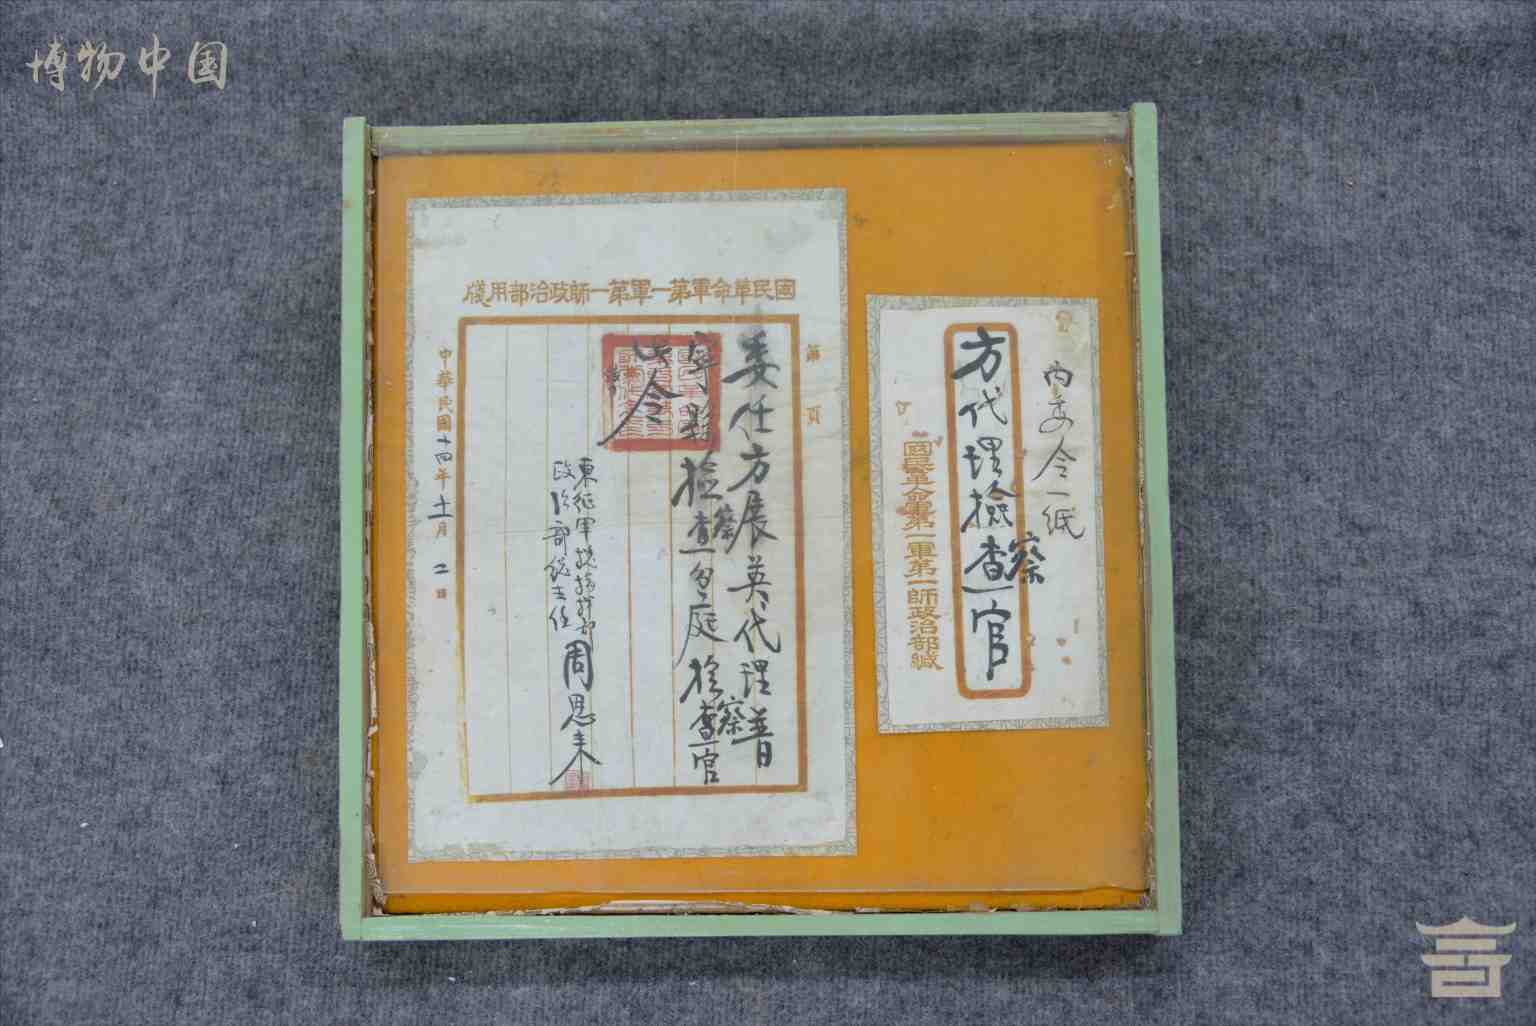 博物中国
國民革命軍第一軍第一師政治部用牋
第 頁
委任方展英代理普
寧縣檢察查分庭檢察查官
此令
東征軍總指揮部
政治部總主任
周恩来
中華民國十四年十一月二日
内委令一紙
方代理檢察查官
國民革命軍第一軍第一師政治部緘